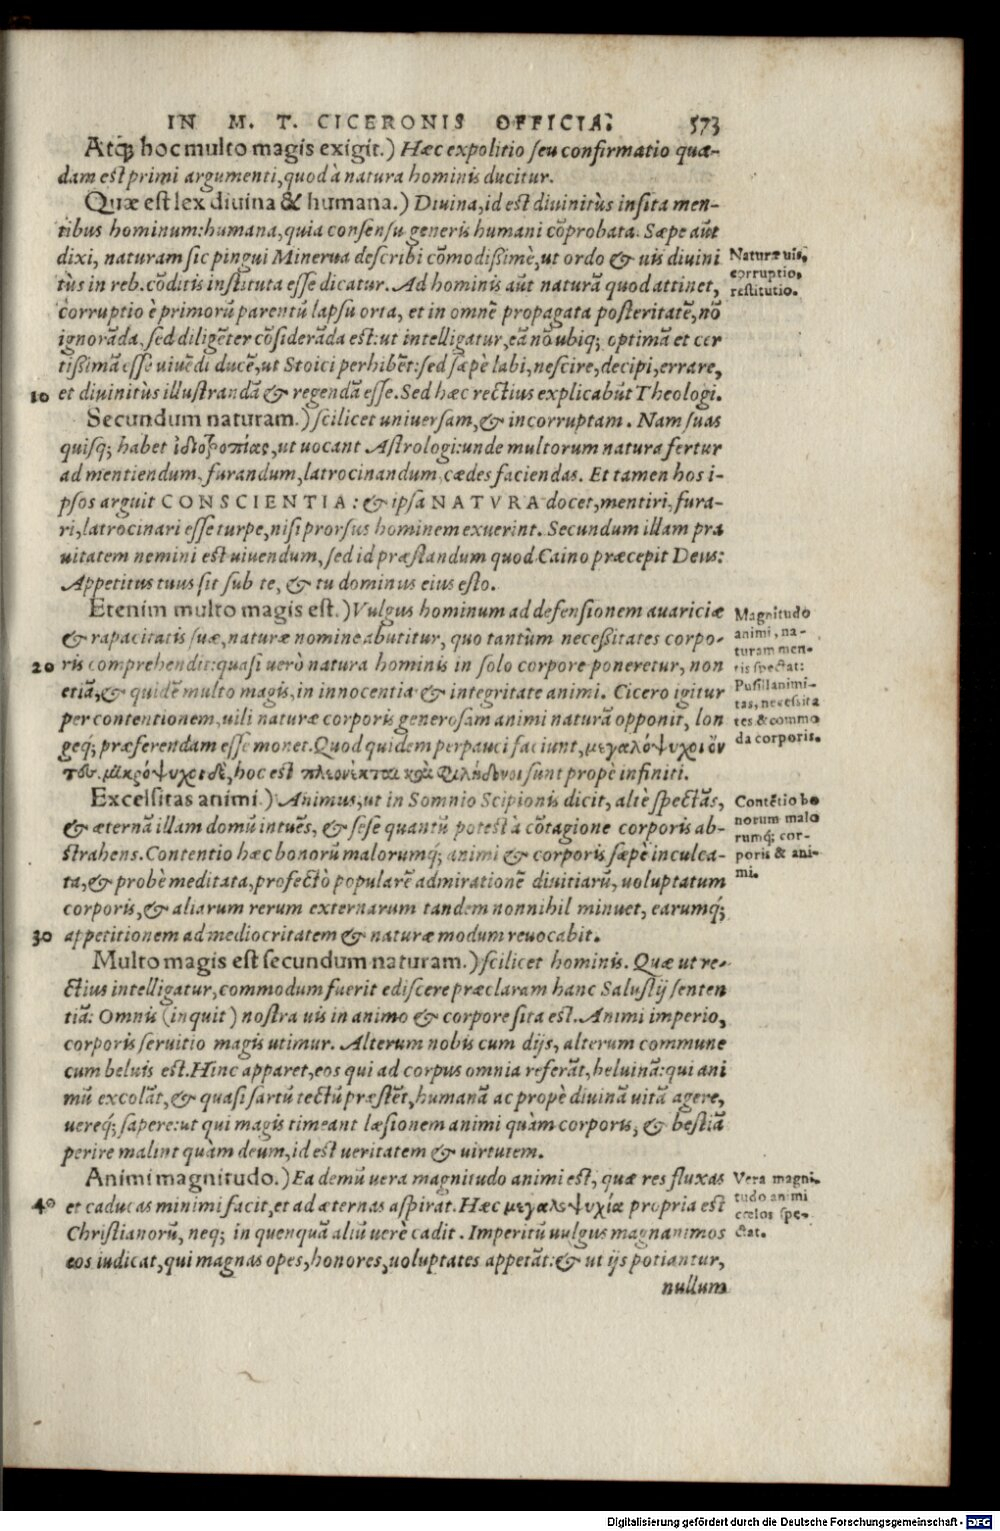 IN M. T. CICERONIS OFFICIA. 573
Atq; hoc multo magis exigit.) Hæc expolitio seu confirmatio quæ-
dam est primi argumenti, quod à natura hominis ducitur.
Quæ est lex diuina & humana.) Diuina, id est diuinitùs insita men-
tibus hominum: humana, quia consensu generis humani cōprobata. Sæpe aūt
dixi, naturam sic pingui Minerua describi cōmodißimè, ut ordo & uis diuini
tùs in reb. cōditis instituta esse dicatur. Ad hominis aūt naturā quod attinet,
corruptio è primorū parentū lapsu orta, et in omnē propagata posteritatē, nō
ignorāda, sed diligēter cōsiderāda est: ut intelligatur, eā nō ubiq; optimā et cer
tißimā esse uiuēdi ducē, ut Stoici perhibēt: sed sæpè labi, nescire, decipi, errare,
10 et diuinitùs illustrandā & regendā esse. Sed hæc rectius explicabūt Theologi.
Naturæ uis,
corruptio,
restitutio.
Secundum naturam.) scilicet uniuersam, & incorruptam. Nam suas
quisq; habet ἰδιοτροπίας, ut uocant Astrologi: unde multorum natura fertur
ad mentiendum, furandum, latrocinandum, cædes faciendas. Et tamen hos i-
psos arguit CONSCIENTIA: & ipsa NATVRA docet, mentiri, fura-
ri, latrocinari esse turpe, nisi prorsus hominem exuerint. Secundum illam pra
uitatem nemini est uiuendum, sed id præstandum quod Caino præcepit Deus:
Appetitus tuus sit sub te, & tu dominus eius esto.
Etenim multo magis est.) Vulgus hominum ad defensionem auariciæ
& rapacitatis suæ, naturæ nomine abutitur, quo tantùm neceßitates corpo-
20 ris comprehendit: quasi uerò natura hominis in solo corpore poneretur, non
etiā, & quidē multo magis, in innocentia & integritate animi. Cicero igitur
per contentionem, uili naturæ corporis generosam animi naturā opponit, lon
geq́; præferendam esse monet. Quod quidem perpauci faciunt, μεγαλόψυχοι ὄν
τες. μικρόψυχοι δὲ, hoc est πλεονέκται καὶ φιλήδονοι sunt propè infiniti.
Magnitudo
animi, na-
turam men-
tis spectat:
Pusillanimi-
tas, necessita
tes & commo
da corporis.
Excelsitas animi.) Animus, ut in Somnio Scipionis dicit, altè spectās,
& æternā illam domū intuēs, & sese quantū potest à cōtagione corporis ab-
strahens. Contentio hæc bonorū malorumq́; animi & corporis sæpè inculca-
ta, & probè meditata, profectò popularē admirationē diuitiarū, uoluptatum
corporis, & aliarum rerum externarum tandem nonnihil minuet, earumq́;
30 appetitionem ad mediocritatem & naturæ modum reuocabit.
Contētio bo
norum malo
rumq́; cor-
poris & ani-
mi.
Multo magis est secundum naturam.) scilicet hominis. Quæ ut re-
ctius intelligatur, commodum fuerit ediscere præclaram hanc Salustij senten
tiā: Omnis (inquit) nostra uis in animo & corpore sita est. Animi imperio,
corporis seruitio magis utimur. Alterum nobis cum dijs, alterum commune
cum beluis est. Hinc apparet, eos qui ad corpus omnia referāt, beluinā: qui ani
mū excolāt, & quasi sartū tectū præstēt, humanā ac propè diuinā uitā agere,
uereq́; sapere: ut qui magis timeant læsionem animi quàm corporis, & bestiā
perire malint quàm deum, id est ueritatem & uirtutem.
Animi magnitudo.) Ea demū uera magnitudo animi est, quæ res fluxas
40 et caducas minimi facit, et ad æternas aspirat. Hæc μεγαλοψυχία propria est
Christianorū, neq; in quenquā aliū uerè cadit. Imperitū uulgus magnanimos
eos iudicat, qui magnas opes, honores, uoluptates appetāt: & ut ijs potiantur,
nullum
Vera magni-
tudo animi
cœlos spe-
ctat.
Digitalisierung gefördert durch die Deutsche Forschungsgemeinschaft - DFG